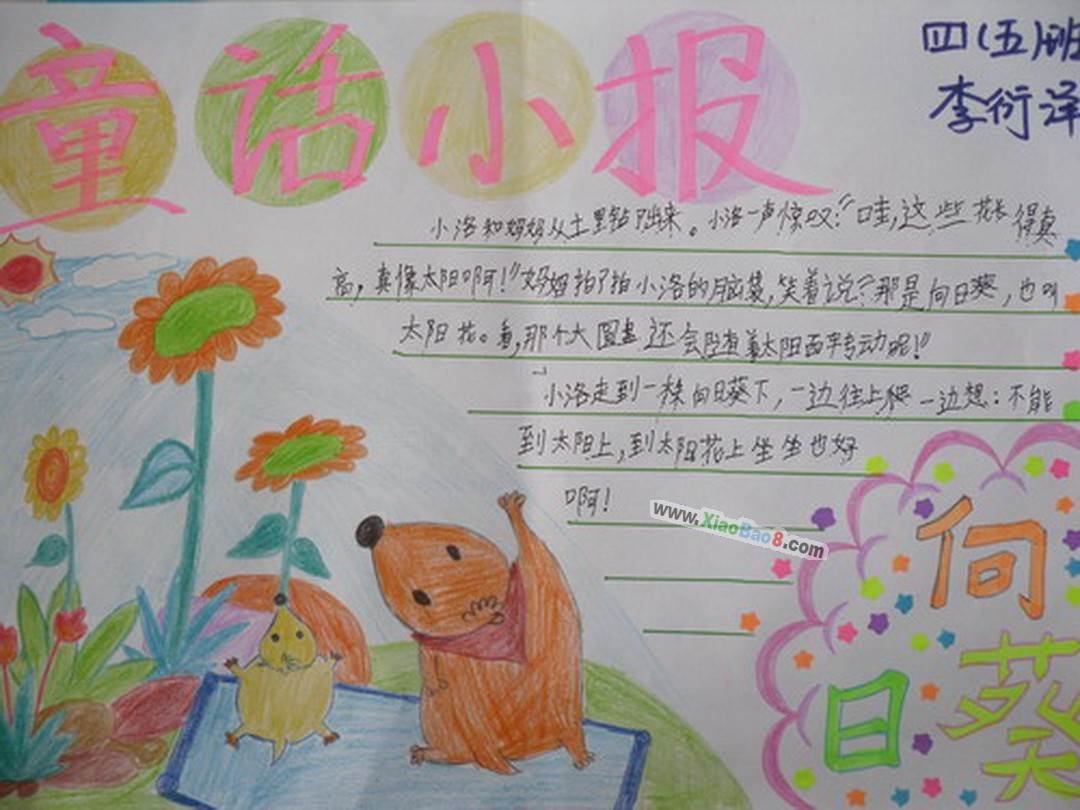 童话小报
四(五)班
李衍泽
小洛和妈妈从土里钻出来。小洛一声惊叹:“哇,这些花长得真
高,真像太阳啊!”妈妈拍拍小洛的脑袋,笑着说:“那是向日葵,也叫
太阳花。看,那个大圆盘还会随着太阳而转动呢!”
小洛走到一株向日葵下,一边往上爬一边想:不能
到太阳上,到太阳花上坐坐也好
啊!
www.XiaoBao8.com
向
日葵